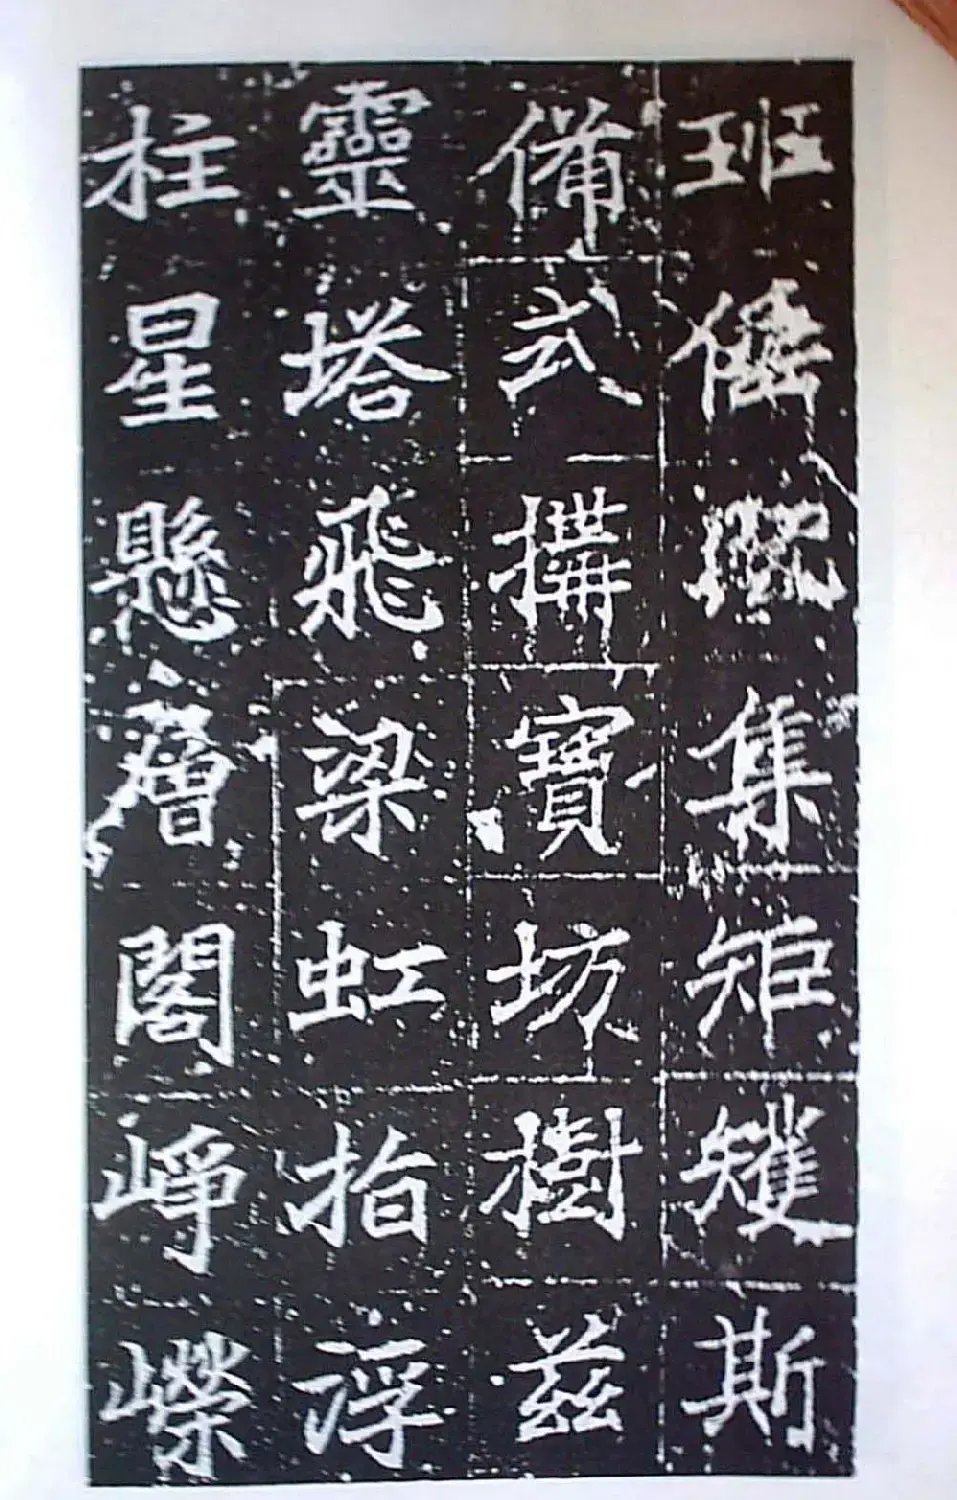 班倕□集矩矱斯
備式搆寶坊樹兹
靈塔飛梁虹指浮
柱星懸層閣崢嶸